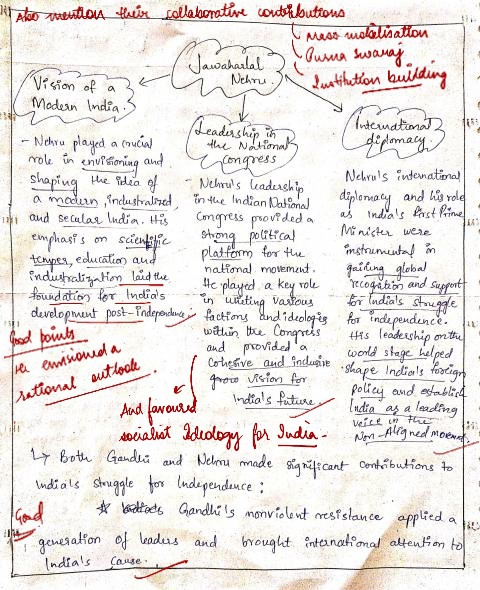 Also mention their collaborative contributions
Mass mobilisation
Purna Swaraj
Institution building
Jawaharlal
Nehru
Vision of a
Modern India.
Leadership in
the National
Congress
International
diplomacy.
- Nehru played a crucial
role in envisioning and
shaping the idea of
a modern, industrialized,
and secular India. His
emphasis on scientific
temper, education and
industrialization laid the
foundation for India's
development post-independence.
Good points
He envisioned a
rational outlook.
- Nehru's leadership
in the Indian National
Congress provided a
strong political
platform for the
national movement.
He played a key role
in uniting various
factions and ideologies
within the Congress
and provided a
cohesive and inclusive
vision for
India's future.
And favoured
socialist Ideology for India.
Nehru's international
diplomacy and his role
as India's first Prime
Minister were
instrumental in
gaining global
recognition and support
for India's struggle
for independence.
His leadership on the
world stage helped
shape India's foreign
policy and establish
India as a leading
voice in the
Non-Aligned movement.
↳ Both Gandhi and Nehru made significant contributions to
India's struggle for Independence:
Good
☆ Gandhi's nonviolent resistance applied a
generation of leaders and brought international attention to
India's cause.